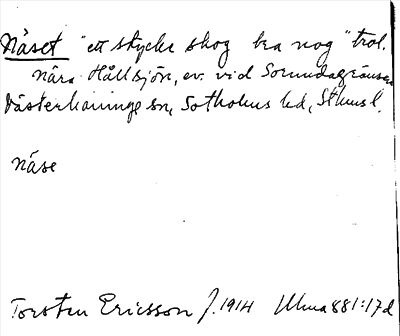 Näset "ett stycke skog bra nog" trol.
nära Hållsjön, ev. vid Sorundagränsen
Västerhaninge sn, Sotholms hd, Sthms l.
näse
Torsten Ericsson f. 1914 Ulma 881:17d